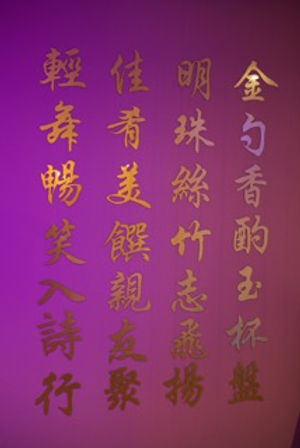 金勺香酌玉杯盤
明珠絲竹志飛揚
佳肴美饌親友聚
輕舞暢笑入詩行